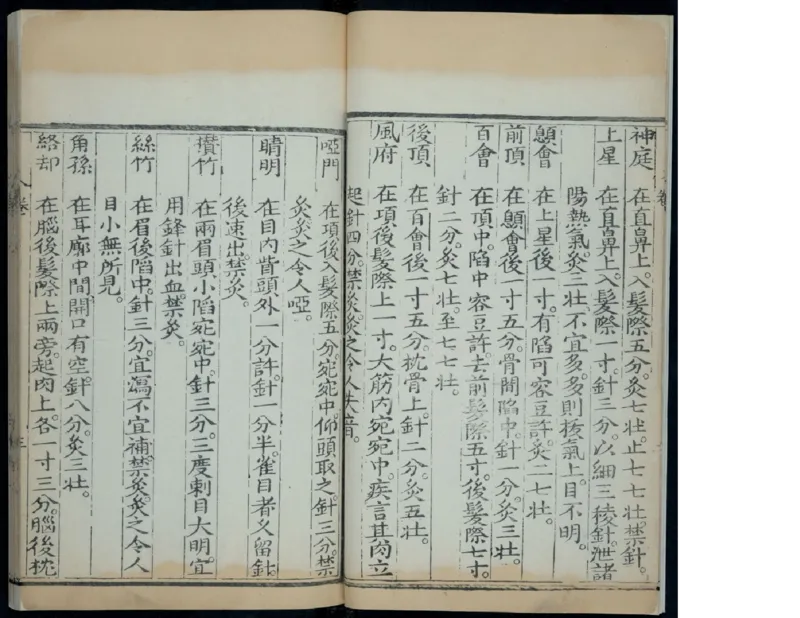 神庭 在直鼻上入髮際五分。灸七壯止七七壯。禁針。
上星 在直鼻上入髮際一寸。針三分。以細三稜針泄諸
陽熱氣。灸三壯不宜多。多則拔氣上。目不明。
顖會 在上星後一寸。有陷可容豆許。灸二七壯。
前頂 在顖會後一寸五分。骨間陷中。針一分。灸三壯。
百會 在頂中。陷中容豆許。去前髮際五寸。後髮際七寸。
針二分。灸七壯。至七七壯。
後頂 在百會後一寸五分。枕骨上。針二分。灸五壯。
風府 在項後髮際上一寸。大筋內宛宛中。疾言其肉立
起。針四分。禁灸。灸之令人失音。
啞門 在項後入髮際五分。宛宛中。仰頭取之。針三分。禁
灸。灸之令人啞。
睛明 在目內眥頭外一分許。針一分半。雀目者久留針。
後速出。禁灸。
攢竹 在兩眉頭小陷宛宛中。針三分。三度刺目大明。宜
用鋒針出血。禁灸。
絲竹 在眉後陷中。針三分。宜瀉不宜補。禁灸。灸之令人
目小無所見。
角孫 在耳廓中間。開口有空。針八分。灸三壯。
絡却 在腦後髮際上兩旁。起肉上。各一寸三分。腦後枕
卷
三